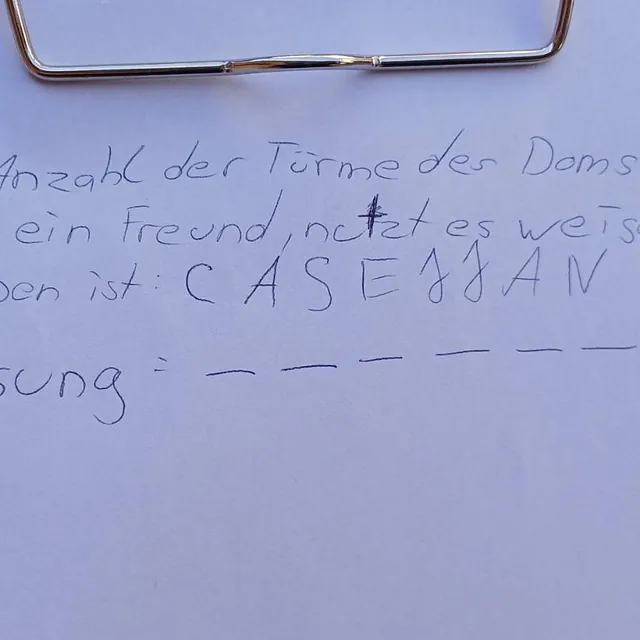 Anzahl der Türme des Doms
ein Freund, nutzt es weis
ben ist: C A S E J J A N
sung = _ _ _ _ _ _